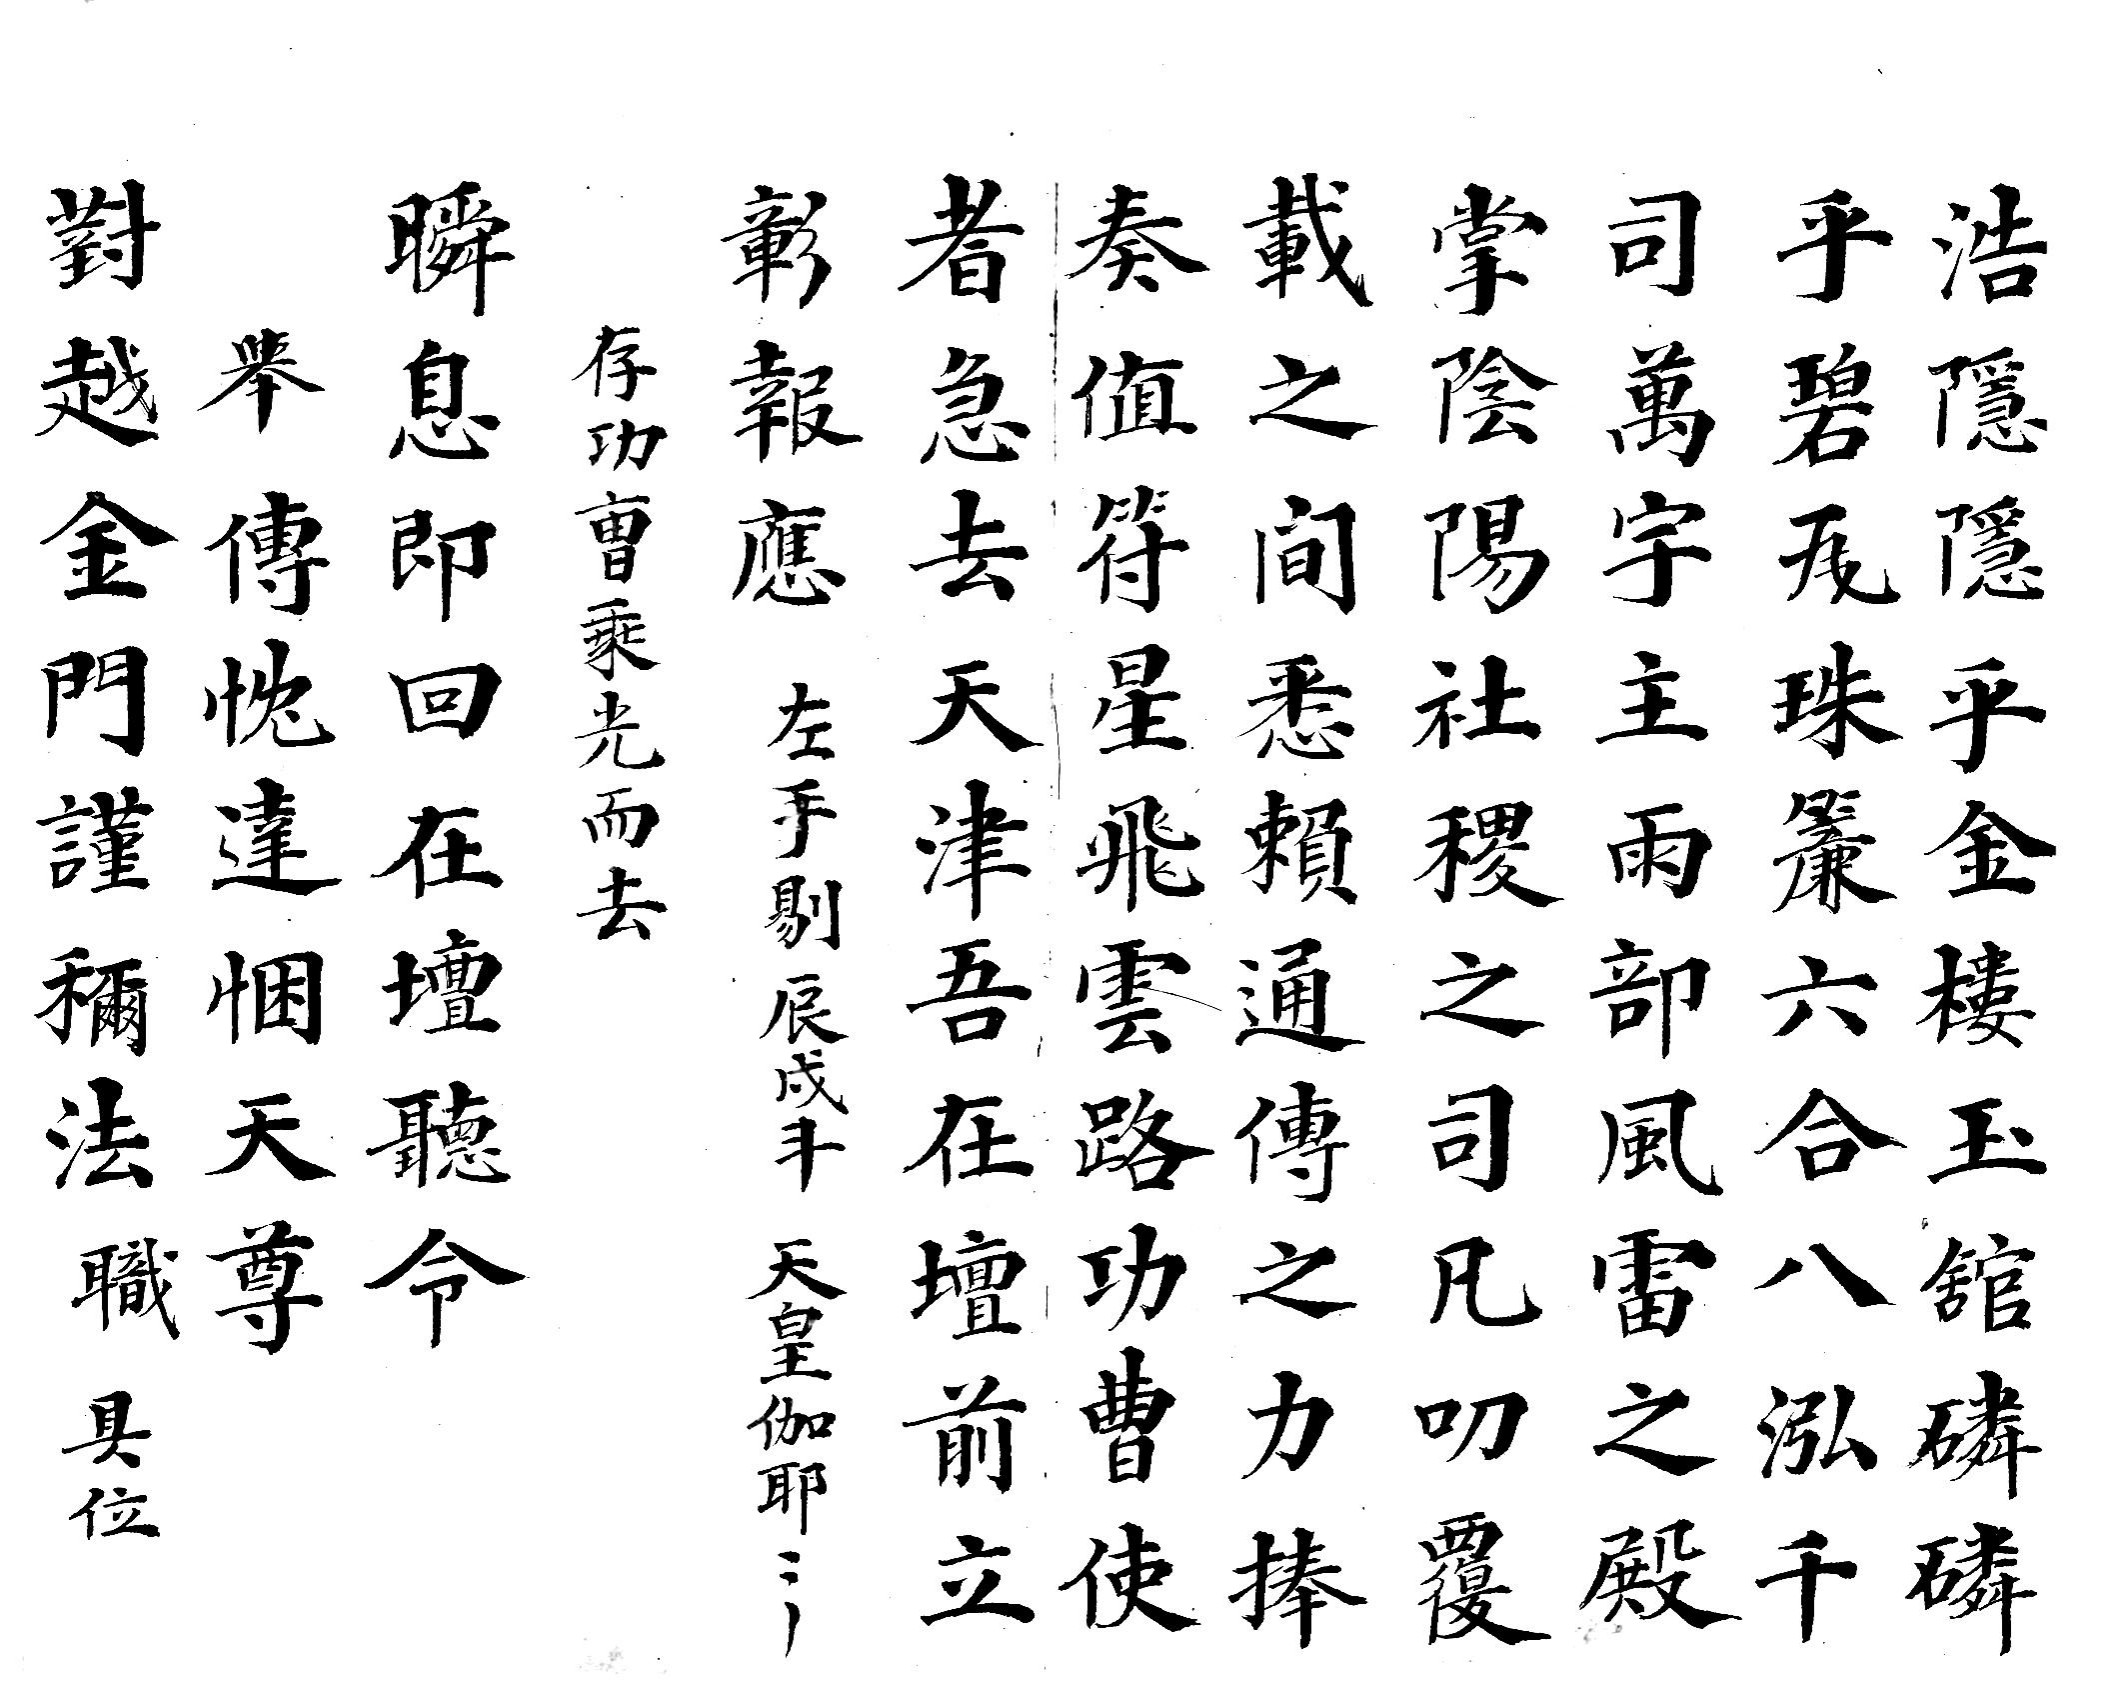 浩隱隱乎金樓玉舘磷磷
乎碧瓦珠簾六合八泓千
司萬宇主雨部風雷之殿
掌陰陽社稷之司凡叨覆
載之间悉賴通傳之力捧
奏值符星飛雲路功曹使
者急去天津吾在壇前立
彰報應 左手剔辰戌斗 天皇伽耶
存功曺乘光而去
瞬息即回在壇聽令
舉傳忱達悃天尊
對越金門謹稱法職具位